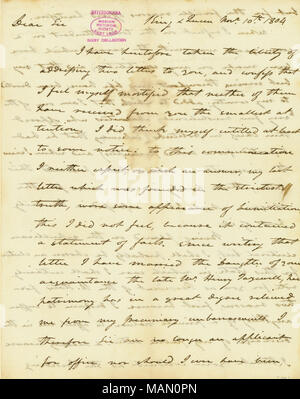 Dear Sir
King & Queen Nov. 10th 1804
JEFFERSONIANA
MISSOURI
HISTORICAL
SOCIETY
BIXBY COLLECTION
I have heretofore taken the liberty of
addressing two letters to you, and confess that
I feel myself mortified that neither of them
have received from you the smallest at-
tention. I did think myself entitled at least
to some notice. to this communication
I neither expect nor wish an answer, my last
letter which was founded in the strictest
truth wore some appearance of humiliation
this I did not feel, because it contained
a statement of facts. Since writing that
letter I have married the daughter of your
acquaintance the late Mr. Henry Tazewell, her
patrimony has in a great degree relieved
me from my pecuniary embarrassments. I
therefore Sir am no longer an applicant
for office, nor should I ever have been
alamy
Image ID: MAN0PN
www.alamy.com